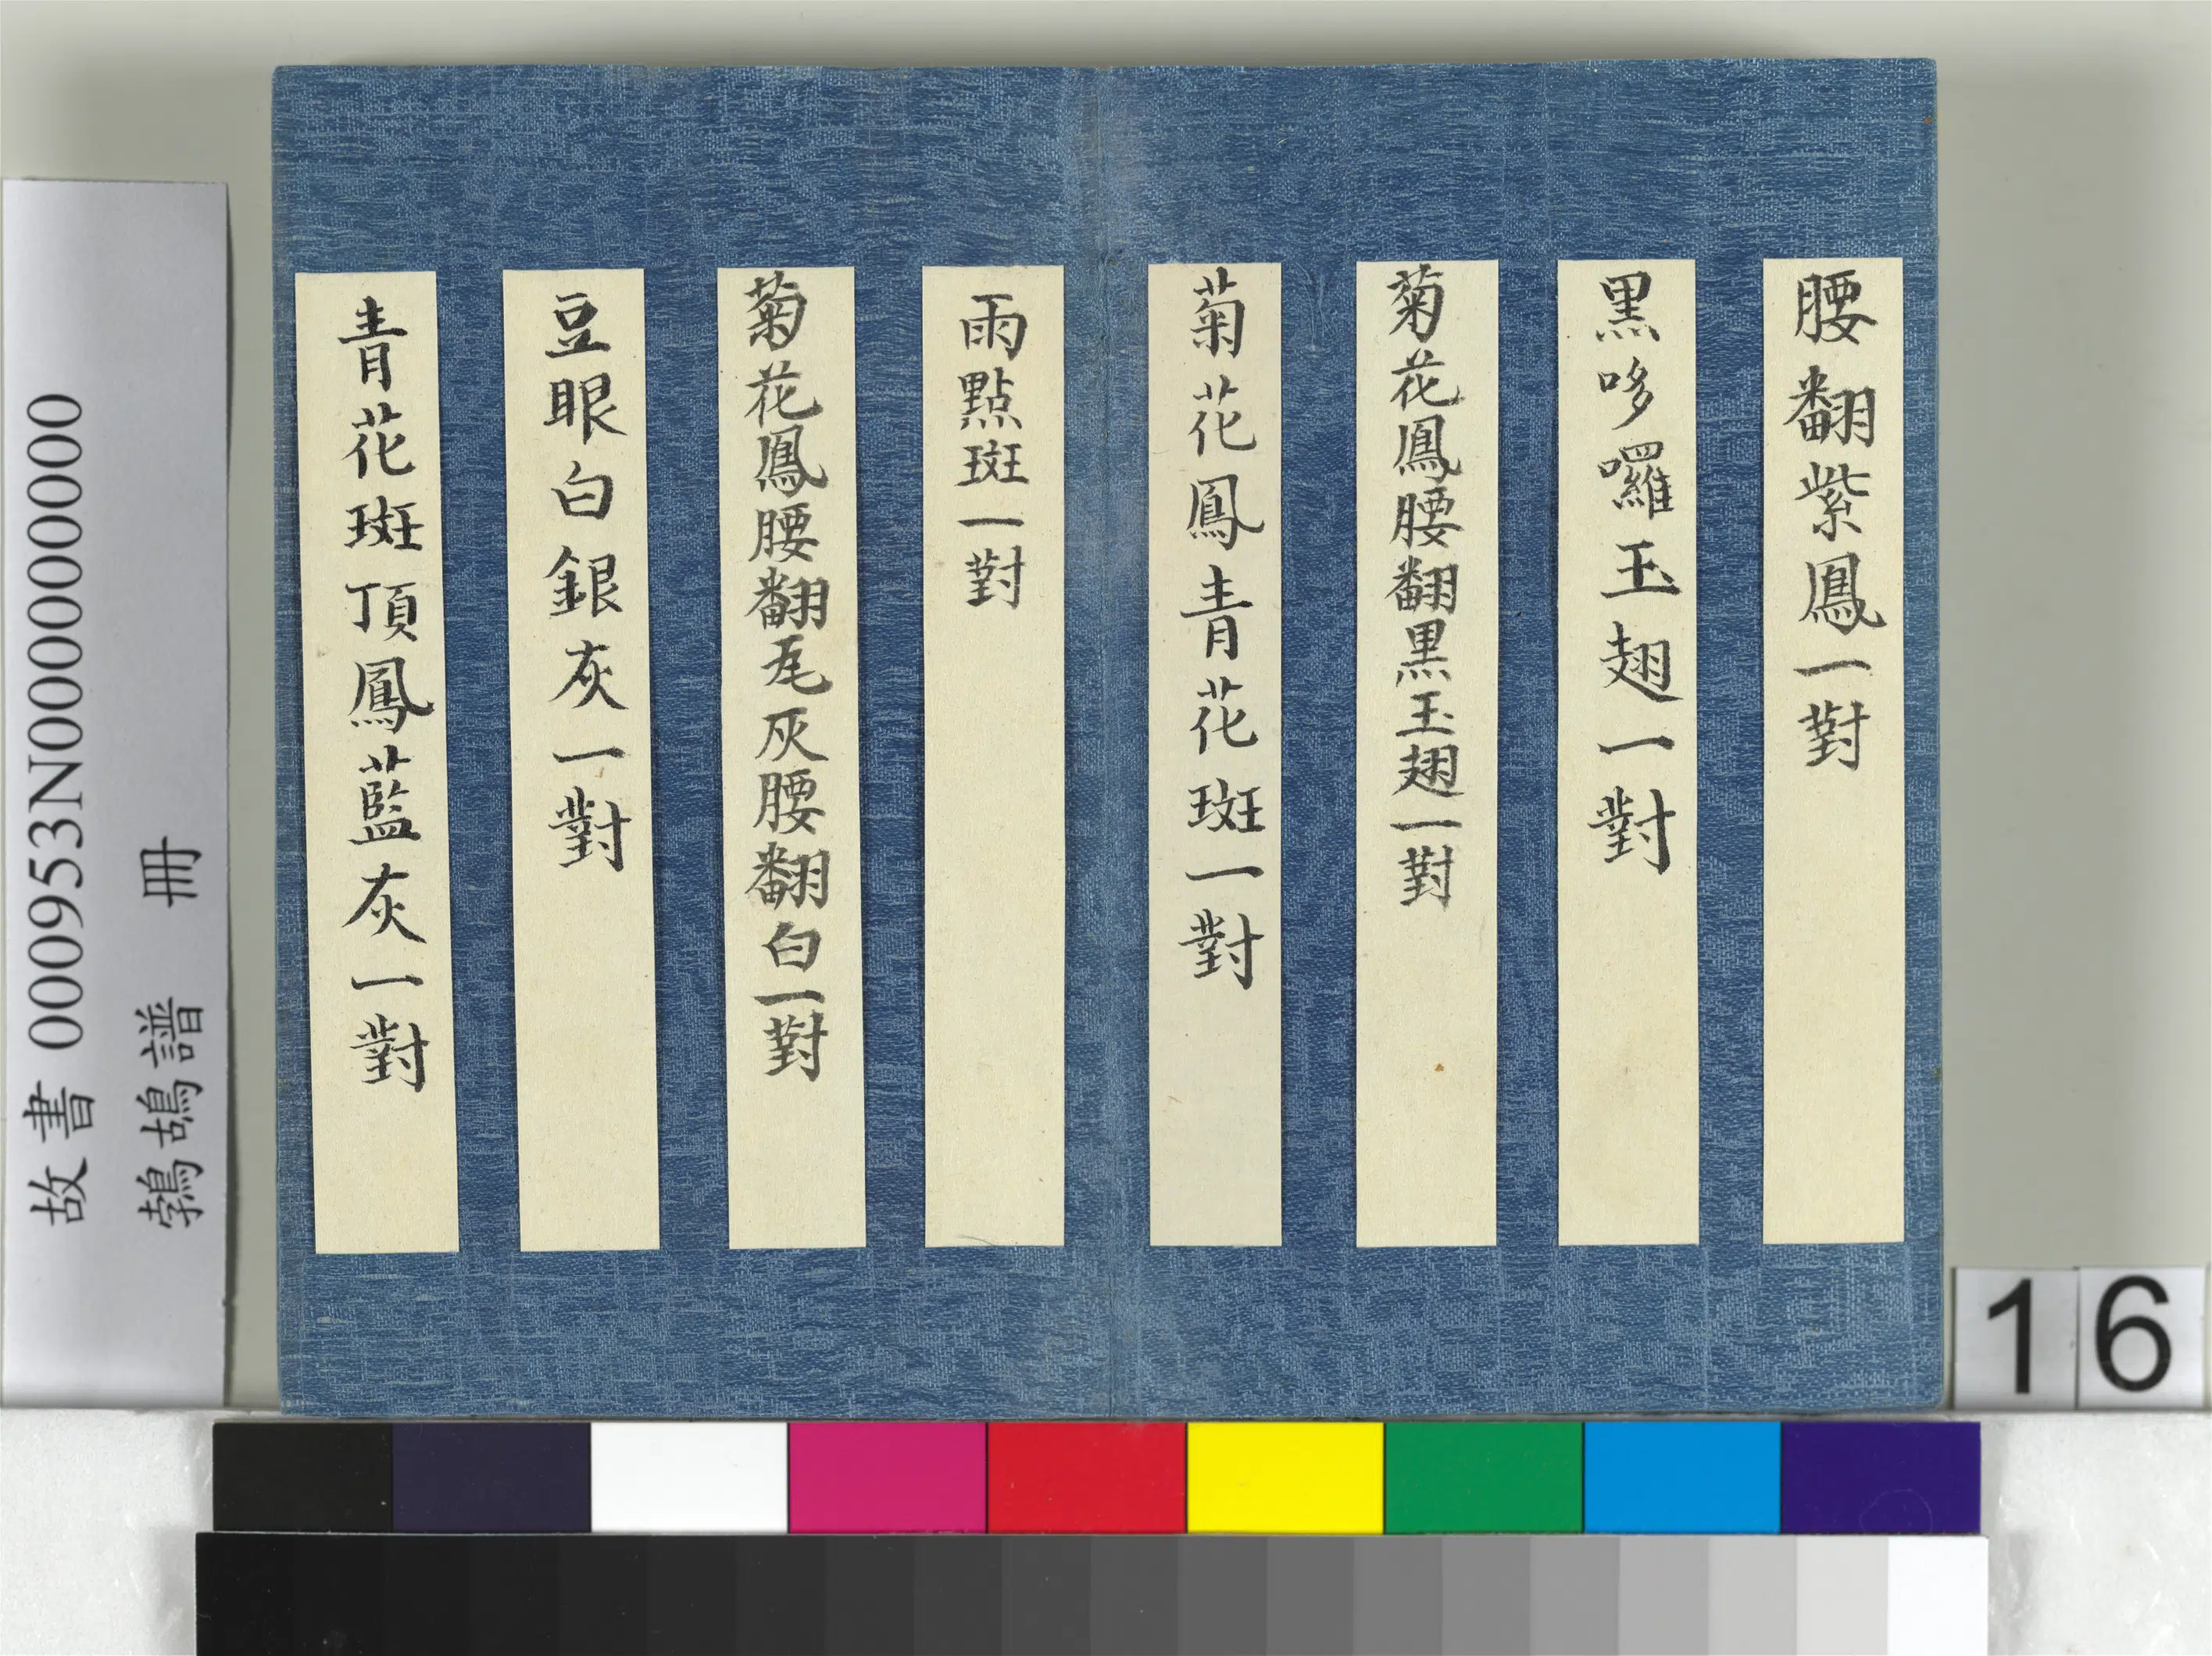 腰翻紫鳳一對
黑哆囉玉翅一對
菊花鳳腰翻黑玉翅一對
菊花鳳青花斑一對
雨點斑一對
菊花鳳腰翻瓦灰腰翻白一對
豆眼白銀灰一對
青花斑頂鳳藍灰一對
故書 000953N000000000
鵓鴣譜 冊
16